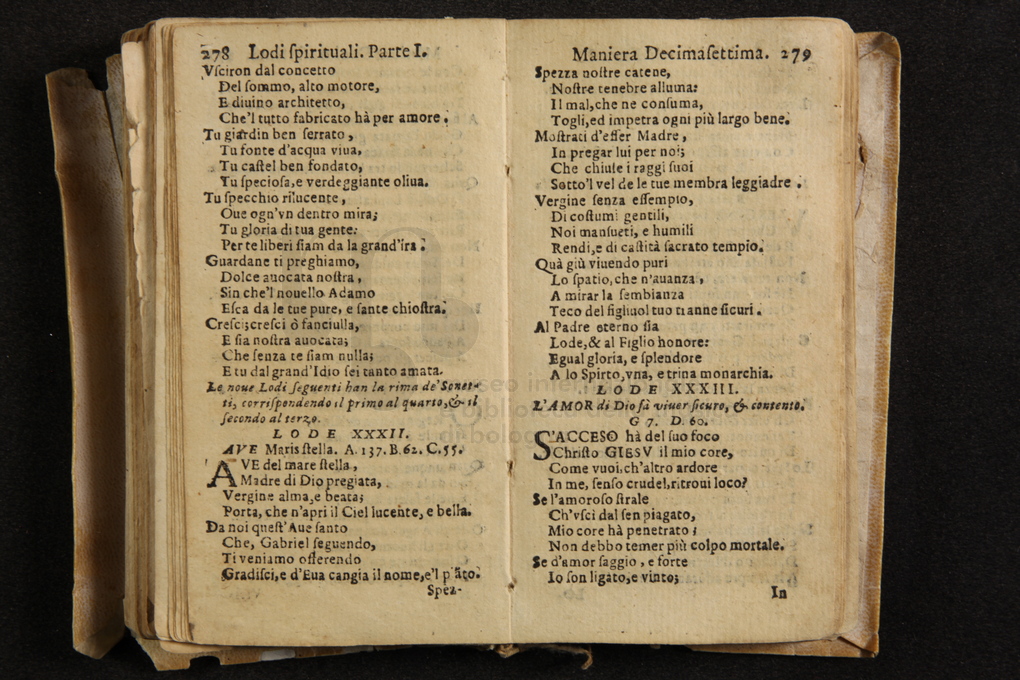 278 Lodi ſpirituali. Parte I.
Vſciron dal concetto
Del ſommo, alto motore,
E diuino architetto,
Che'l tutto fabricato hà per amore.
Tu giardin ben ſerrato,
Tu fonte d'acqua viua,
Tu caſtel ben fondato,
Tu ſpecioſa, e verdeggiante oliua.
Tu ſpecchio rilucente,
Oue ogn'vn dentro mira;
Tu gloria di tua gente:
Per te liberi ſiam da la grand'ira.
Guardane ti preghiamo,
Dolce auocata noſtra,
Sin che'l nouello Adamo
Eſca da le tue pure, e ſante chioſtra.
Creſci; creſci ò fanciulla,
E ſia noſtra auocata;
Che ſenza te ſiam nulla;
E tu dal grand'Idio ſei tanto amata.
Le noue Lodi ſeguenti han la rima de' Sonet-
ti, corriſpondendo il primo al quarto, & il
ſecondo al terzo.
LODE XXXII.
AVE Maris ſtella. A. 137. B. 62. C. 55.
AVE del mare ſtella,
Madre di Dio pregiata,
Vergine alma, e beata;
Porta, che n'apri il Ciel lucente, e bella.
Da noi queſt'Aue ſanto
Che, Gabriel ſeguendo,
Ti veniamo offerendo
Gradiſci, e d'Eua cangia il nome, e'l pãto.
Spez-
Maniera Decimaſettima. 279
Spezza noſtre catene,
Noſtre tenebre alluma:
Il mal, che ne conſuma,
Togli, ed impetra ogni più largo bene.
Moſtrati d'eſſer Madre,
In pregar lui per noi;
Che chiuſe i raggi ſuoi
Sotto'l vel de le tue membra leggiadre.
Vergine ſenza eſſempio,
Di coſtumi gentili,
Noi manſueti, e humili
Rendi, e di caſtità ſacrato tempio.
Quà giù viuendo puri
Lo ſpatio, che n'auanza,
A mirar la ſembianza
Teco del figliuol tuo tianne ſicuri.
Al Padre eterno ſia
Lode, & al Figlio honore:
Egual gloria, e ſplendore
A lo Spirto, vna, e trina monarchia.
LODE XXXIII.
L'AMOR di Dio fà viuer ſicuro, & contento.
G 7. D. 60.
S'ACCESO hà del ſuo foco
Chriſto GIESV il mio core,
Come vuoi, ch'altro ardore
In me, ſenſo crudel, ritroui loco?
Se l'amoroſo ſtrale
Ch'vſcì dal ſen piagato,
Mio core hà penetrato;
Non debbo temer più colpo mortale.
Se d'amor ſaggio, e forte
Io ſon ligato, e vinto;
In